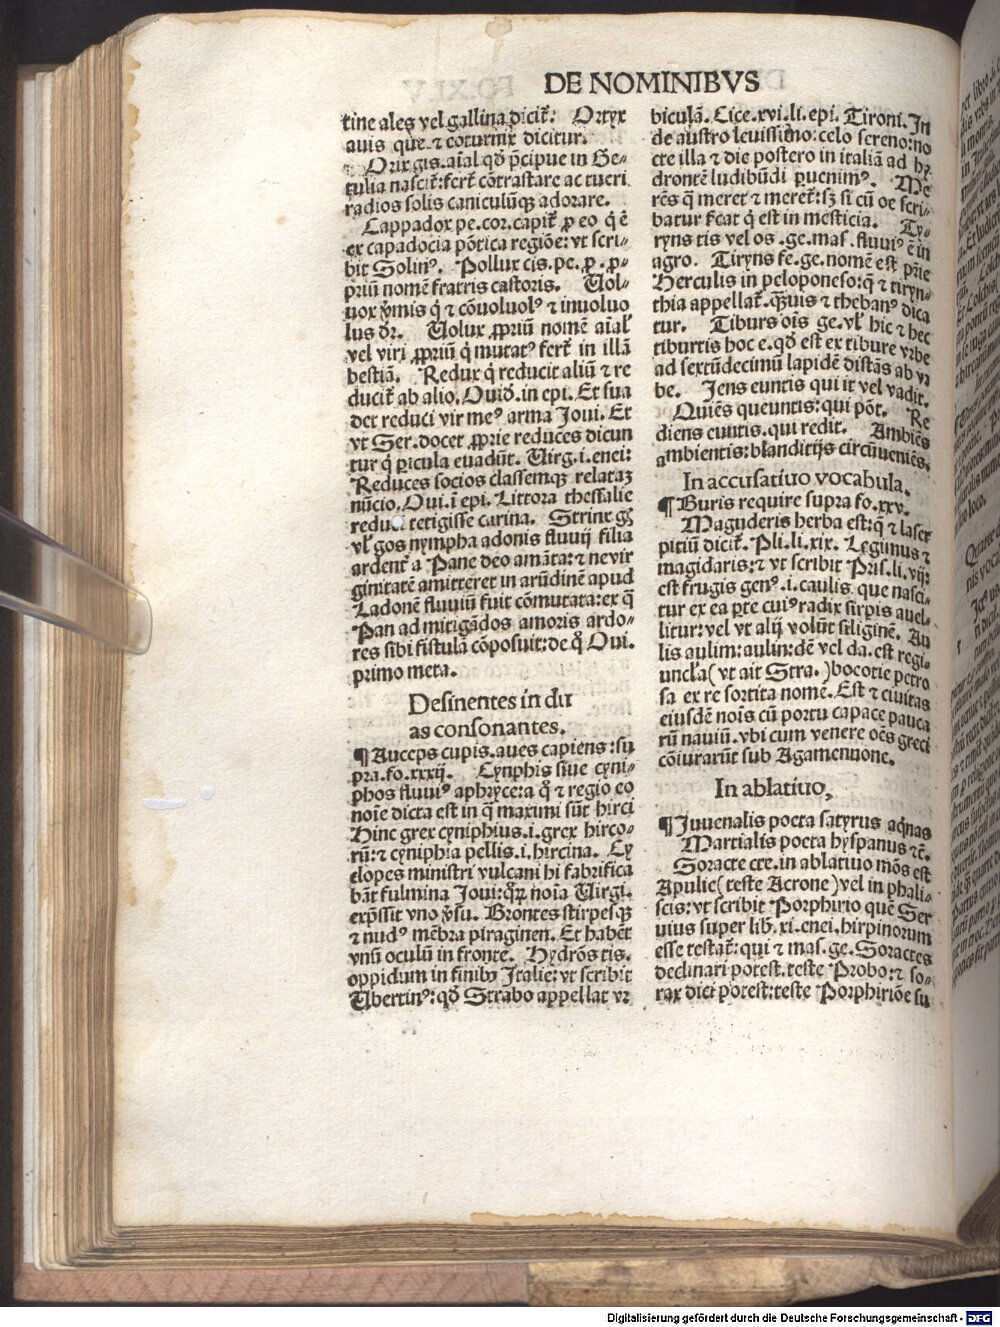 DE NOMINIBVS
tine ales vel gallina dicit̃: Ortyx
auis que ⁊ coturnix dicitur.
Orix gis. aĩal qđ p̃cipue in Ge⸗
tulia nascit̃: fert̃ cõtrastare ac tueri
radios solis caniculũq; adorare.
Cappadox pe. cor. capit̃ ꝓ eo q̇ ẽ
ex capadocia põtica regiõe: vt scri⸗
bit Solinꝰ. Pollux cis. pe. ꝓ. ꝓ⸗
priũ nomẽ fratris castoris. Uol⸗
uox ꝟmis q̇ ⁊ cõuoluolꝰ ⁊ inuoluo
lus dr̃. Uolux ꝓpriũ nomẽ aĩal̃
vel viri ꝓpriũ q̇ mutatꝰ fert̃ in illã
bestiã. Redux q̇ reducit aliũ ⁊ re
ducit̃ ab alio. Ouiđ. in epi. Et sua
det reduci vir meꝰ arma Joui. Et
vt Ser. docet ꝓprie reduces dicun
tur q̇ ꝑicula euadũt. Uirg. i. enei:
Reduces socios classemq; relataꝫ
nũcio. Oui. ĩ epi. Littora thessalie
reduci tetigisse carina. Strinx gꝫ
vl̃ gos nympha adonis fluuij filia
ardent̃ a Pane deo amãta: ⁊ ne vir
ginitatẽ amitteret in arũdinẽ apud
Ladonẽ fluuiũ fuit cõmutata: ex q̃
Pan ad mitigãdos amoris ardo⸗
res sibi fistulã cõposuit: de q̇ Oui.
primo meta.
Desinentes in du
as consonantes.
¶ Auceps cupis. aues capiens: su
pra. fo. xxxij. Cynphis siue cyni⸗
phos fluuiꝰ aphryce: a q̇ ⁊ regio eo
noĩe dicta est in q̃ maximi sũt hirci
Hinc grex cyniphius. i. grex hirco⸗
rũ: ⁊ cyniphia pellis. i. hircina. Cy
clopes ministri vulcani hi fabrifica
bãt fulmina Joui: qꝝ noĩa Uirgi.
exp̃ssit vno ꝟsu. Brontes stirpesq;
⁊ nudꝰ mẽbra piragmen. Et habẽt
vnũ oculũ in fronte. Hydrõs tis.
oppidum in finibꝰ Italie: vt scribit
Ubertinꝰ: qđ Strabo appellat vr
biculã. Cice. xvi. li. epi. Tironi. In
de austro leuissimo: celo sereno: no
cte illa ⁊ die postero in italiã ad hy
drontẽ ludibũdi ꝑuenimꝰ. Me
rẽs q̇ meret ⁊ meret̃: sꝫ si cũ oe scri⸗
batur fcat q̇ est in mesticia. Ty⸗
ryns tis vel os. ge. mas. fluuiꝰ ẽ in
agro. Tiryns fe. ge. nomẽ est p̃rie
Herculis in peloponeso: q̃ ⁊ tiryn⸗
thia appellat̃. q̃uis ⁊ thebanꝰ dica
tur. Tiburs oĩs ge. vl̃ hic ⁊ hec
tiburtis hoc e. qđ est ex tibure vrbe
ad sextũdecimũ lapidẽ distãs ab vr
be. Iens euntis qui it vel vadit.
Quiẽs queuntis: qui põt. Re
diens euntis. qui redit. Ambiẽs
ambientis: blanditijs circũueniẽs.
In accusatiuo vocabula.
¶ Buris require supra fo. xxv.
Maguderis herba est: q̃ ⁊ laser
pitiũ dicit̃. Pli. li. xix. Legimus ⁊
magidaris: ⁊ vt scribit Pris. li. vij:
est frugis genꝰ. i. caulis que nasci⸗
tur ex ea ꝑte cuiꝰ radix stirpis auel⸗
litur: vel vt alij volũt siliginẽ. Au
lis aulim: aulin: dẽ vel da. est regi⸗
uncl̃a ( vt ait Stra. ) boeotie petro
sa ex re sortita nomẽ. Est ⁊ ciuitas
eiusdẽ noĩs cũ portu capace pauca
rũ nauiũ. vbi cum venere oẽs greci
cõiurarũt sub Agamennone.
In ablatiuo.
¶ Juuenalis poeta satyrus aq̃nas
Martialis poeta hyspanus ⁊c̃.
Soracte cte. in ablatiuo mõs est
Apulie ( teste Acrone ) vel in phali⸗
scis: vt scribit Porphirio quẽ Ser
uius super lib. xi. enei. hirpinorum
esse testat̃: qui ⁊ mas. ge. Soractes
declinari potest. teste Probo: ⁊ so⸗
rax dici potest: teste Porphiriõe su
Digitalisierung gefördert durch die Deutsche Forschungsgemeinschaft - DFG